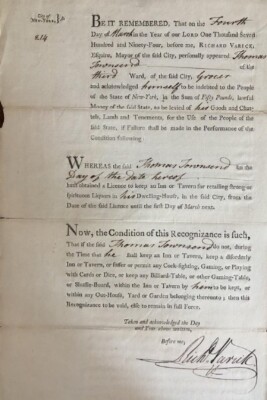 City of
New-York, ss.
BE IT REMEMBERED, That on the Fourth
Day of March in the Year of our LORD One Thousand Seven
Hundred and Ninety-Four, before me, RICHARD VARICK,
Esquire, Mayor of the said City, personally appeared Thomas
Townsend of the
third Ward, of the said City, Grocer
and acknowledged himself to be indebted to the People
of the State of New-York, in the Sum of Fifty Pounds, lawful
Money of the said State, to be levied of his Goods and Chat-
tels, Lands and Tenements, for the Use of the People of the
said State, if Failure shall be made in the Performance of the
Condition following:
WHEREAS the said Thomas Townsend on the
Day of the date hereof
hath obtained a Licence to keep an Inn or Tavern for retailing strong or
spirituous Liquors in his Dwelling-House, in the said City, from the
Date of the said Licence until the first Day of March next.
Now, the Condition of this Recognizance is such,
That if the said Thomas Townsend do not, during
the Time that he shall keep an Inn or Tavern, keep a disorderly
Inn or Tavern, or suffer or permit any Cock-fighting, Gaming, or Playing
with Cards or Dice, or keep any Billiard-Table, or other Gaming-Table,
or Shuffle-Board, within the Inn or Tavern by him to be kept, or
within any Out-House, Yard or Garden belonging thereunto; then this
Recognizance to be void, else to remain in full Force.
Taken and acknowledged the Day
and Year above written,
Before me,
Richd. Varick